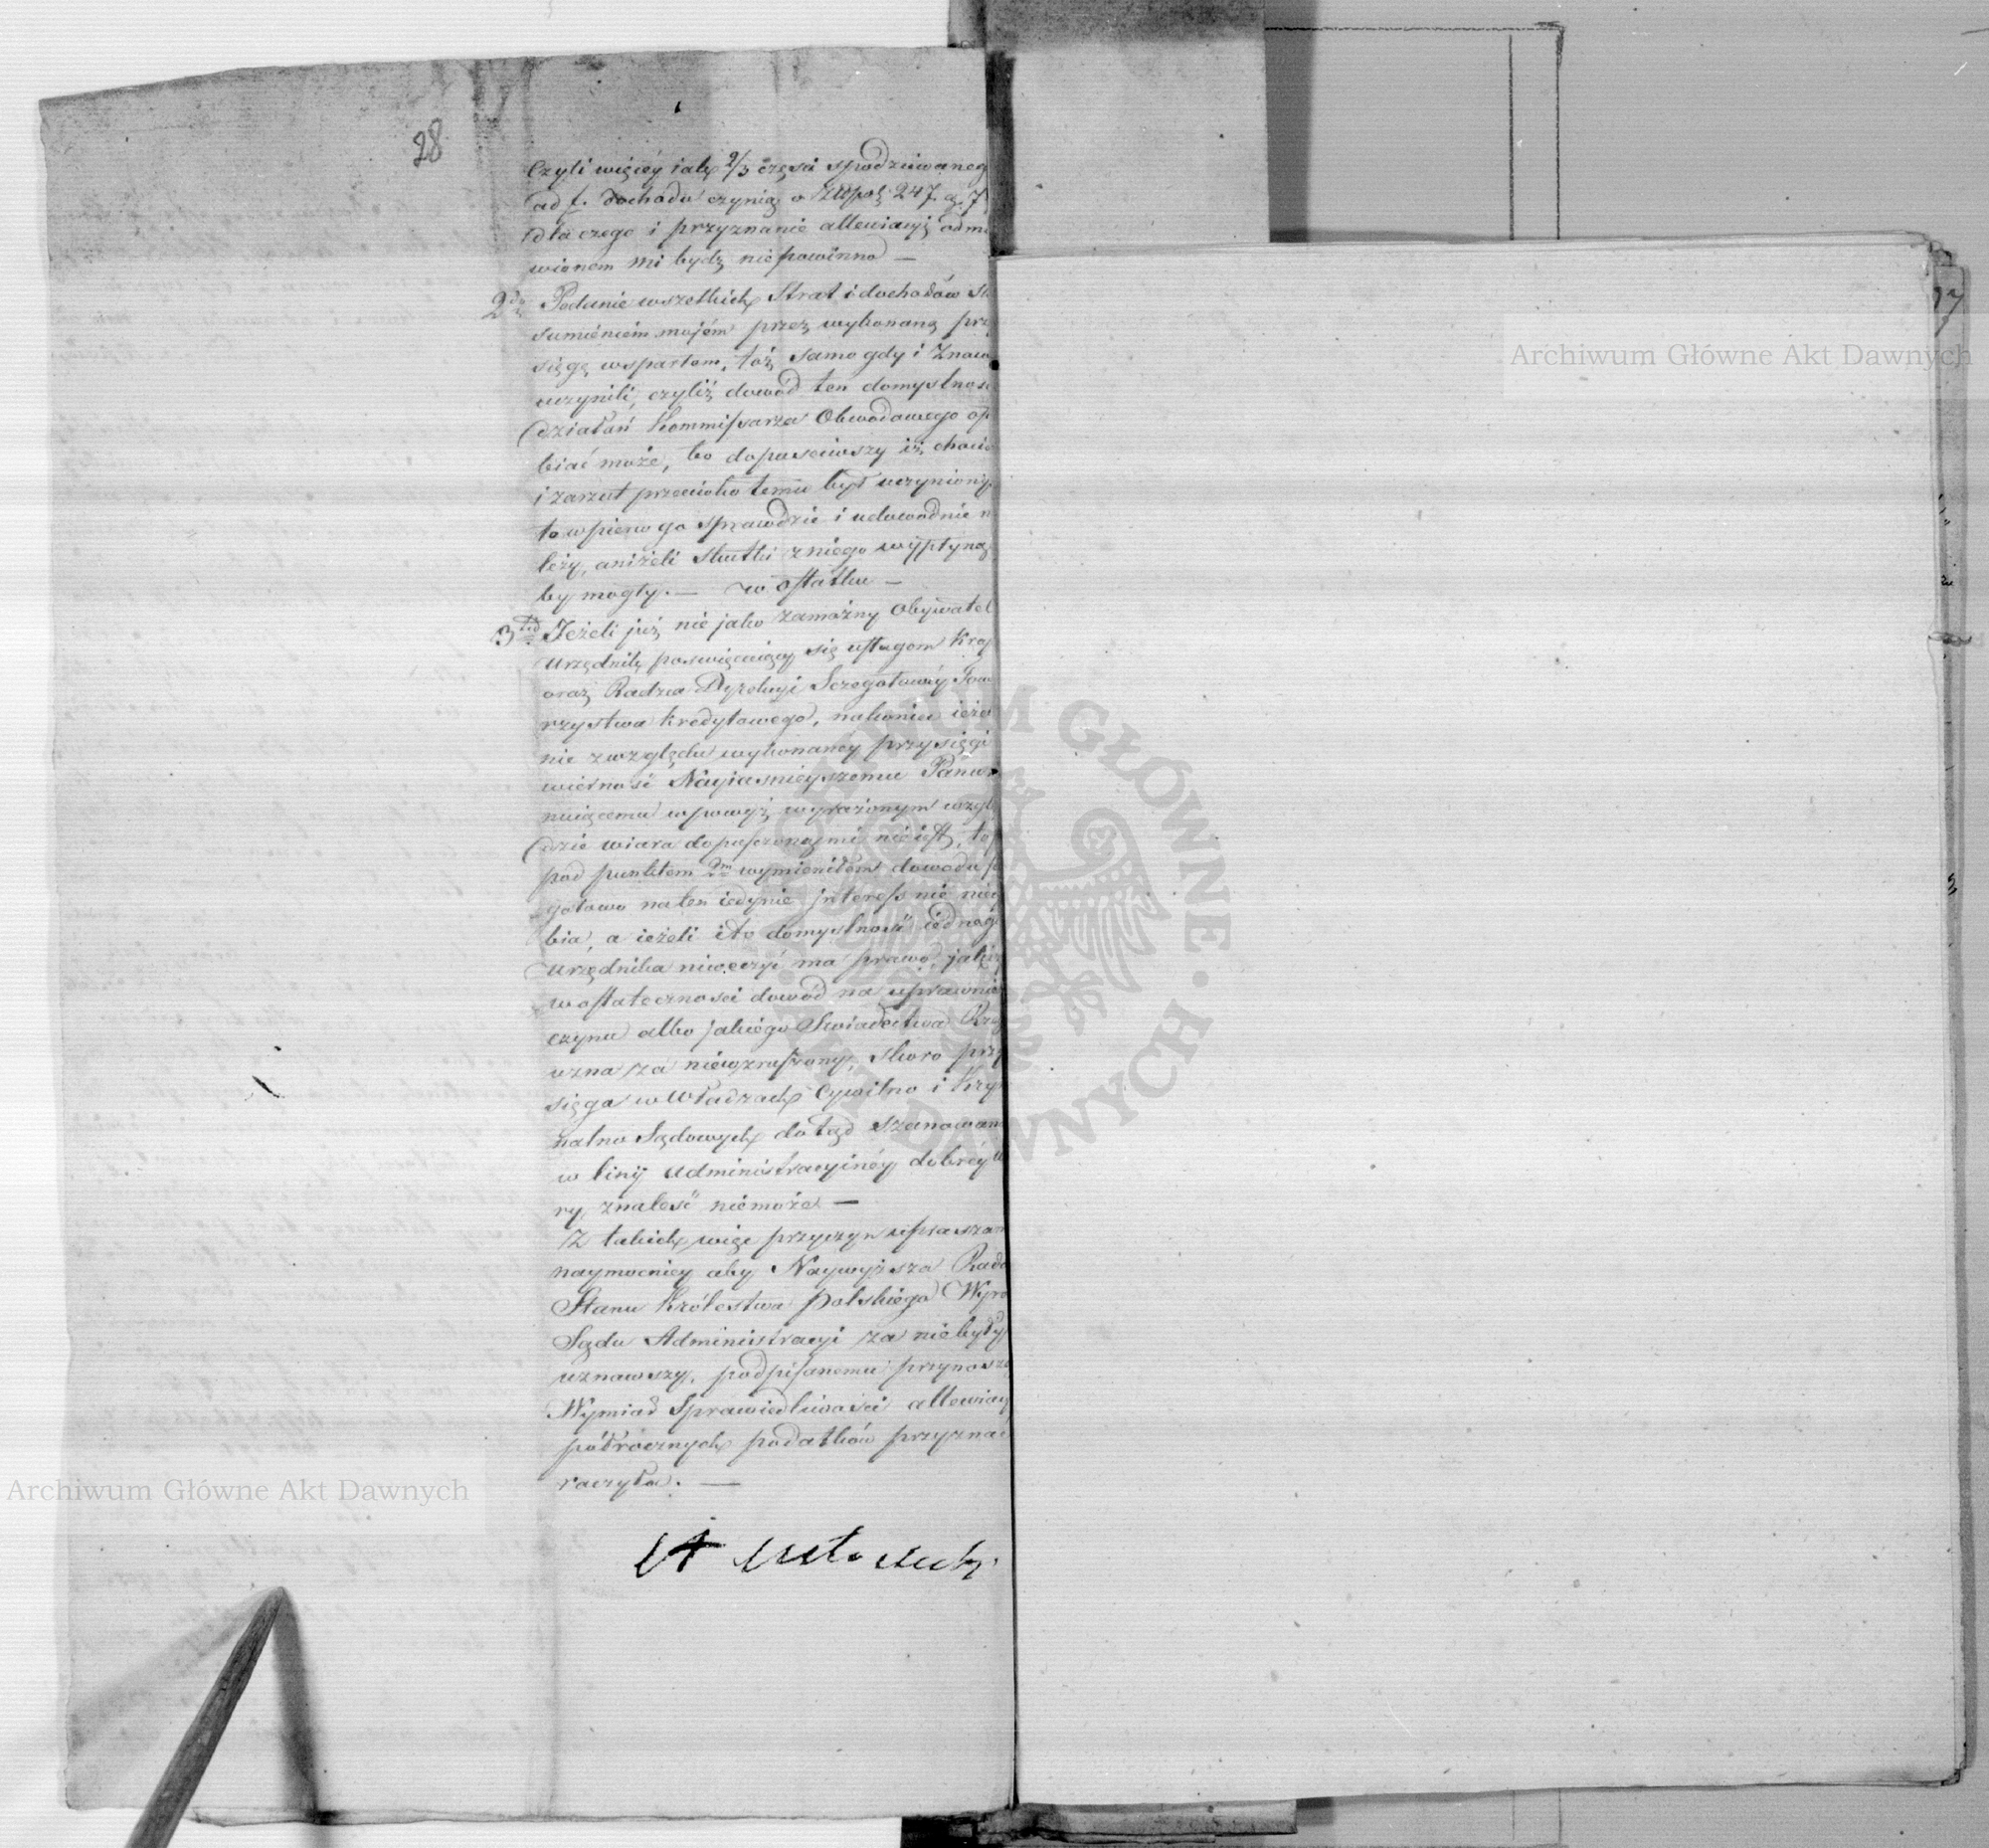 28
Czyli więcéy iak 2/3 części spodziewaneg
ad f. dochodu czynią o Złłpol: 247. g. 7
dla czego i przyznanie allewiacyi odmó
wionem mi bydź niepowinno —
2do Podanie wszelkich Strat i dochodów
sumieniem mojém przez wykonaną prz
sięgę wspartem, toż samo gdy i Znaw
uczynili, czyliż dowód ten domyslnos
działań Kommissarza Obwodowego
biać może, bo dopuściwszy iż choci
i zarzut przeciwko temu był uczyniony
to wpierw go sprawdzić i udowodnić n
leży, aniżeli skutki z niego wypłyną
by mogły. — w ostatku —
3tio Jeżeli już nie jako zamożny Obywatel
Urzędnik poswięcaiący się usługom Kraj
oraz Radzca Dyrekcyi Sczegołowéy Tow
rzystwa Kredytowego, nakoniec ieże
nie zwzględu wykonaney przysięgi
wierność Nayiasnieyszemu Panu
nuiącemu wpowyż wyrażonym wzglę
dzie wiara dopuszczoną mi nie iest, to
pod punktem 2m wymieniłem dowodu
gotowo na ten iedynie interess nie
bia, a ieżeli i to domyslność iednego
Urzędnika niweczyć ma prawo, jakiż
w ostateczności dowód na usprawnie
czynu albo jakiego Swiadectwa
uzna za niewzruszony, skoro przy
sięga w Władzach Cywilno i Kry
nalno Sądowych dotąd szanowan
w linij Administracyinéy dobréy
ry znaleść niemoże —
Z takich więc przyczyn upraszam
naymocniey aby Naywyższa Rada
Stanu Królestwa Polskiego Wyro
Sądu Administracyi za niebyły
uznawszy, podpisanemu przynosz
Wymiar Sprawiedliwości allewiacy
półrocznych podatków przyznać
raczyła. —
Archiwum Główne Akt Dawnych
Archiwum Główne Akt Dawnych
ARCHIWUM GŁÓWNE AKT DAWNYCH